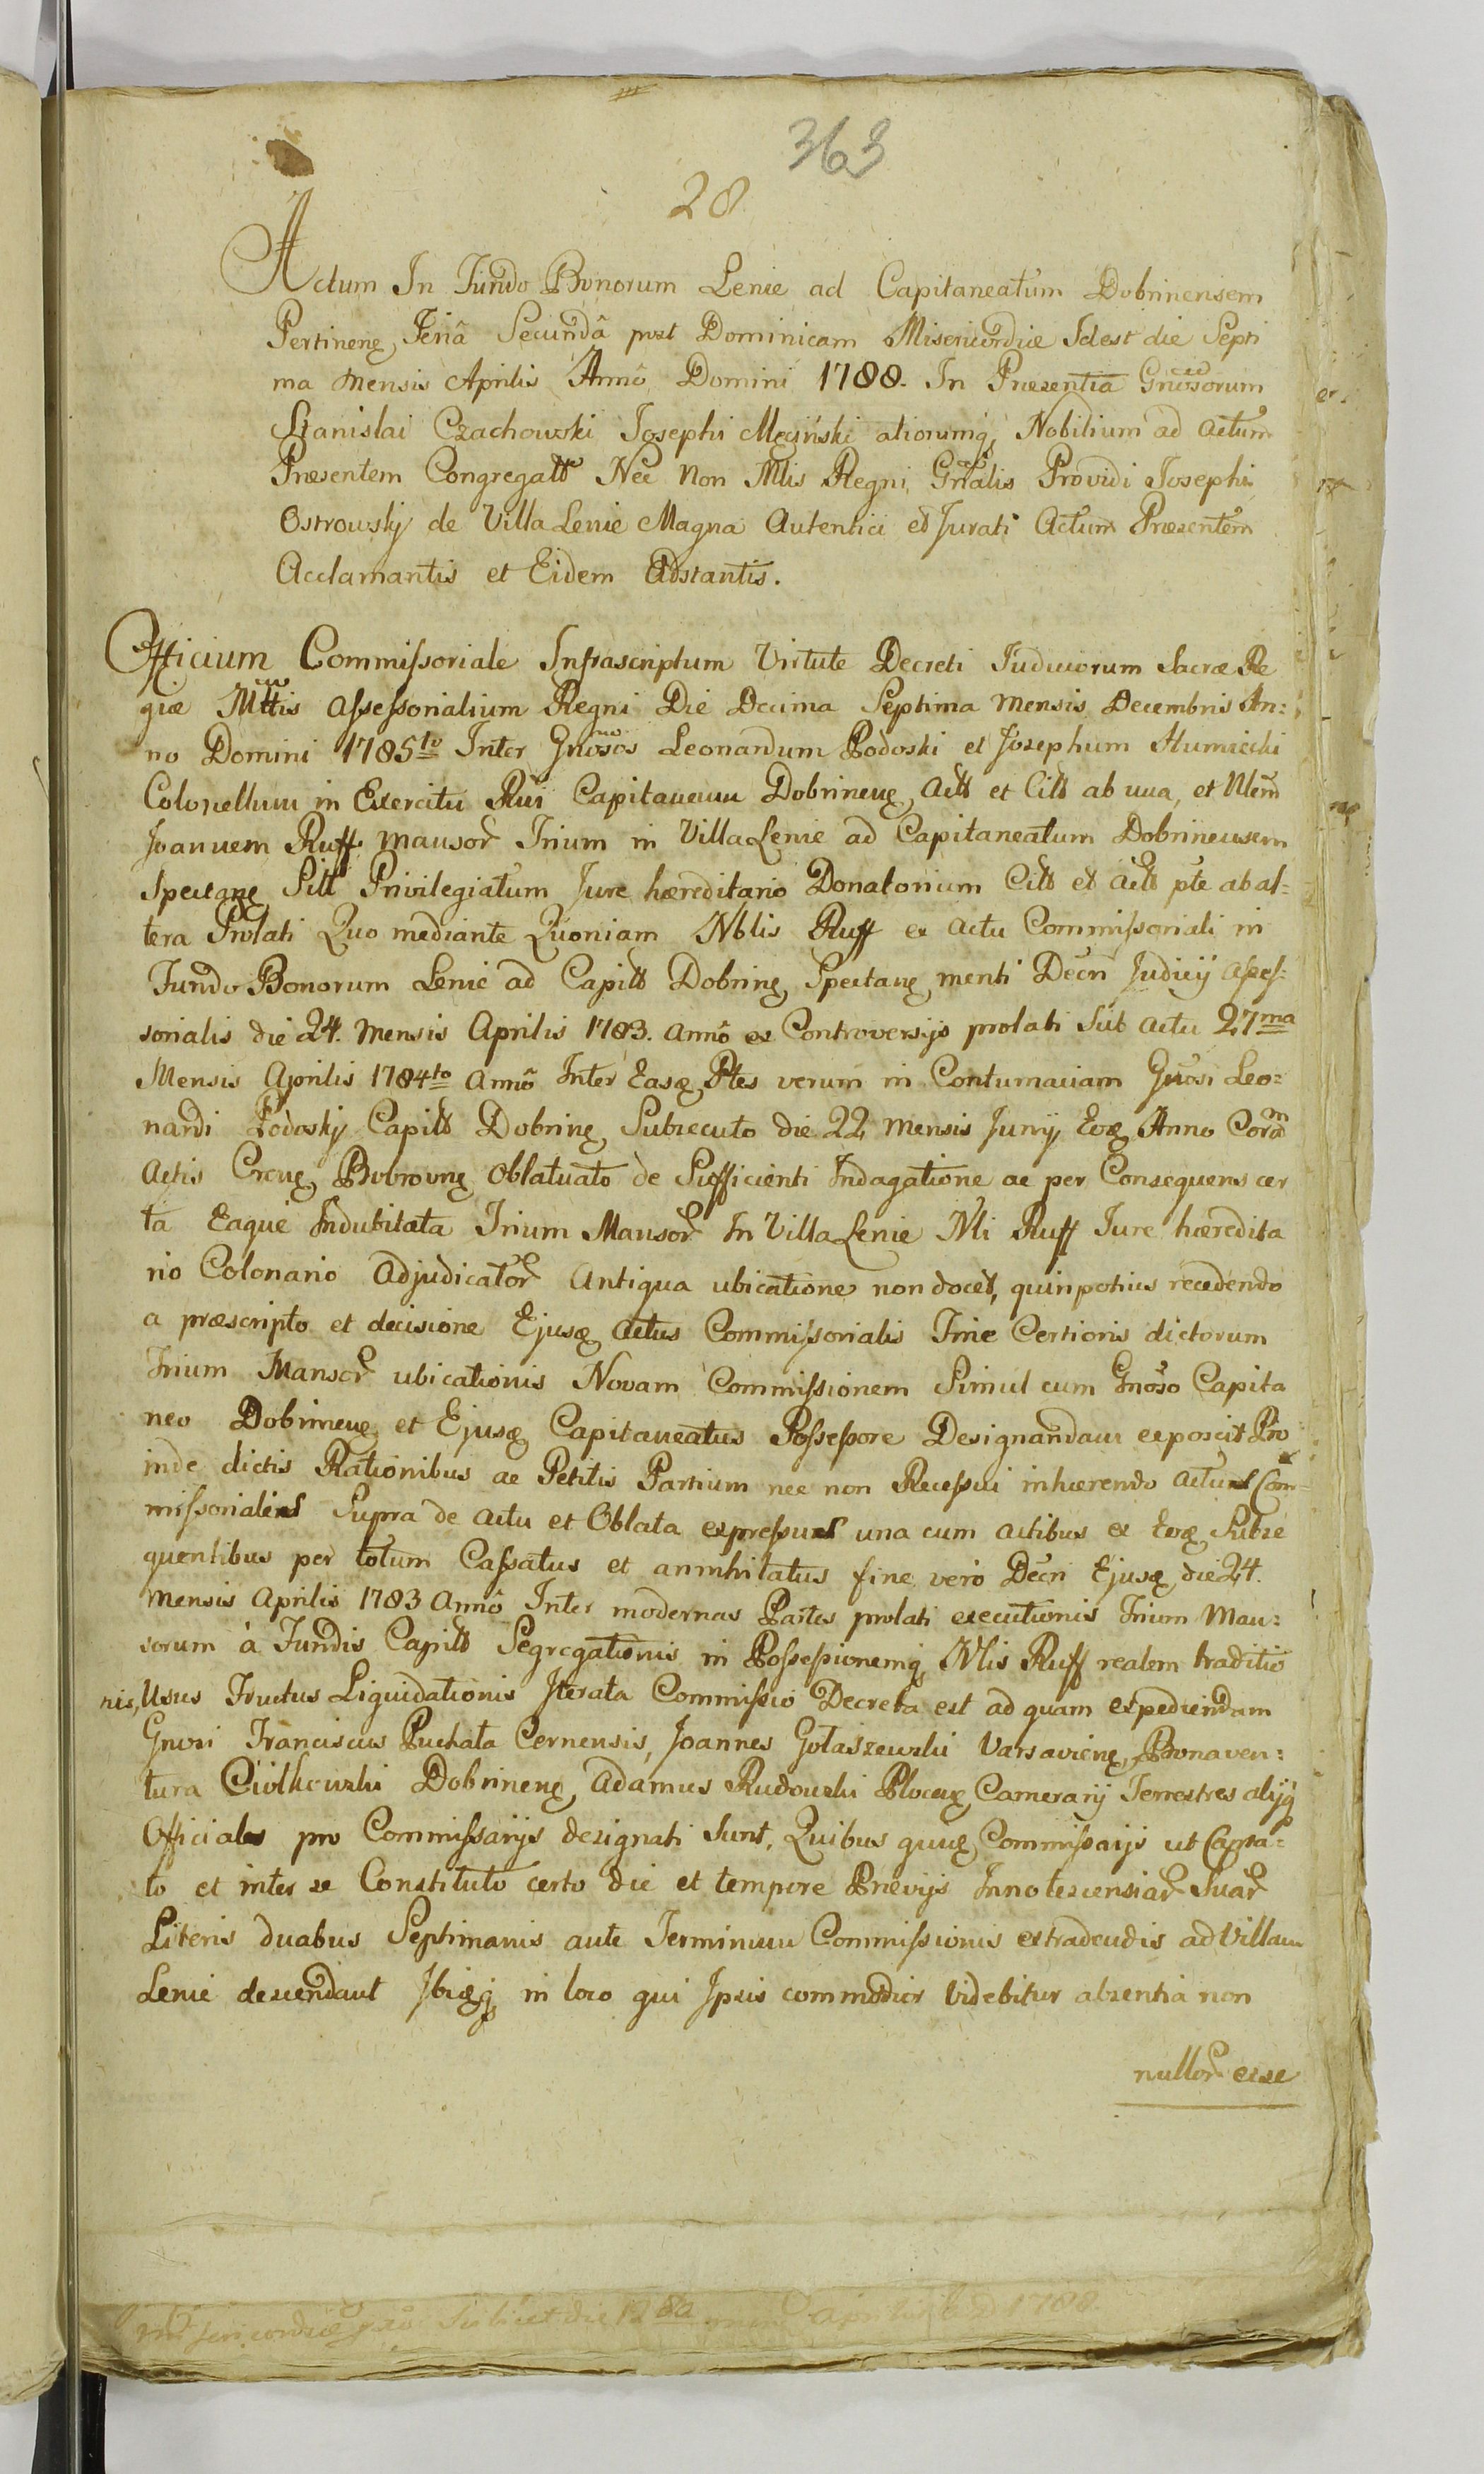 363
28
Actum In Fundo Bonorum Lenie ad Capitaneatum Dobrinensem
Pertinenę Feriâ Secundâ post Dominicam Misericordiæ Idest die Septi
ma Mensis Aprilis Annô Domini 1788. In Præsentia Gnõsorum
Stanislai Czachowski Josephi Męciński aliorumq, Nobilium ad Actum
Præsentem Congregatt Nec Non Mlis Regni Gñalis Providi Josephi
Ostrowsky de Villa Lenie Magna Autentici et Jurati Actum Præsentem
Acclamantis et Eidem Adstantis.
Officium Commissoriale Infrascriptum Virtute Decreti Judiciorum Sacræ Re
giæ Mttis Assessorialium Regni Die Decima Septima Mensis Decembris An:
no Domini 1785to Inter Gnõsos Leonardum Podoski et Josephum Humiecki
Colonellum in Exercitu Rni Capitaneum Dobrinenę, Actt et Citt ab una, et Nlem
Joannem Ruff Mansor Trium in Villa Lenie ad Capitaneatum Dobrinensem
Spectanę Sitt Privilegiatum Jure hæreditario Donatorium Citt et Actt pte ab al=
tera Prolati Quo mediante Quoniam Nblis Ruff ex Actu Commissoriali in
Fundo Bonorum Lenie ad Capitt Dobrinę, Spectanę, menti Decri Judicij Asses=
sorialis die 24. Mensis Aprilis 1783. Annô ex Controversijs prolati Sub Actu 27ma
Mensis Aprilis 1784to Annô Inter Easę Ptes verum in Contumaciam Gnosi Leo=
nardi Podosky Capitt Dobrinę, Subsecuto die 22 Mensis Junij Eoę Anno Coram
Actis Crenę, Bobrovnę Oblatuato de Sufficienti Indagatione ac per Consequens cer
ta Eaque Indubitata Trium Mansor In Villa Lenie Nli Ruff Jure hæredita
rio Colonario Adjudicator Antiqua ubicatione non docet, quinpotius recedendo
a præscripto et decisione Ejusę Actus Commissorialis Fine Certioris dictorum
Trium Mansor ubicationis Novam Commissionem Simul cum Gnoso Capita
neo Dobrinenę et Ejusę Capitaneatus Possessore Designandam exposcit Pro
inde dictis Rationibus ac Petitis Partium nec non Recessui inhærendo Actus Com=
missorialis Supra de Actu et Oblata expressus una cum Actibus ex Eoę Subse
quentibus per totum Cassatus et annihilatus fine vero Decri Ejusę, die 24.
Mensis Aprilis 1783 Annô Inter modernas Partes prolati executionis Trium Man=
sorum à Fundis Capitt Segregationis in Possessionemq, Nlis Ruff realem traditio
nis, Usus Fructus Liquidationis Iterata Commissio Decreta est ad quam expediendam
Gnosi Franciscus Puchała Cernensis, Joannes Gołaszewski Varsavienę, Bonaven=
tura Ciółkowski Dobrinenę, Adamus Rudowski Plocenę Camerarij Terrestres alijq
Officiales pro Commissarijs designati Sunt, Quibus quuę Commissarijs ut Capta=
to et inter se Constituto certo die et tempore Prævijs Innotescensiar Suar
Literis duabus Septimanis ante Terminum Commissionis extradendis ad Villam
Lenie descendant Ibiqę in loco qui Ipsis commodior Videbitur absentia non
nullor esse